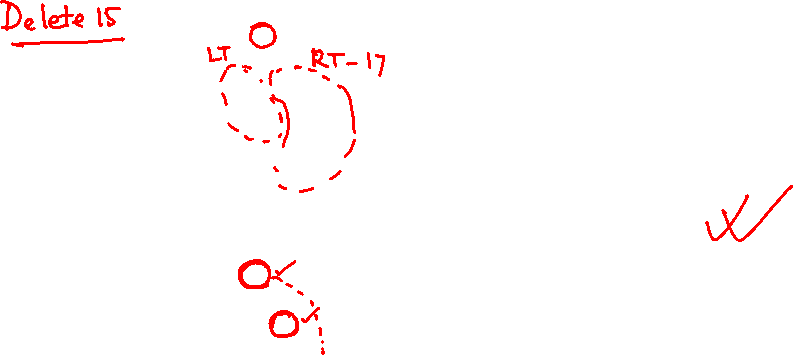 Delete 15
LT
RT-17